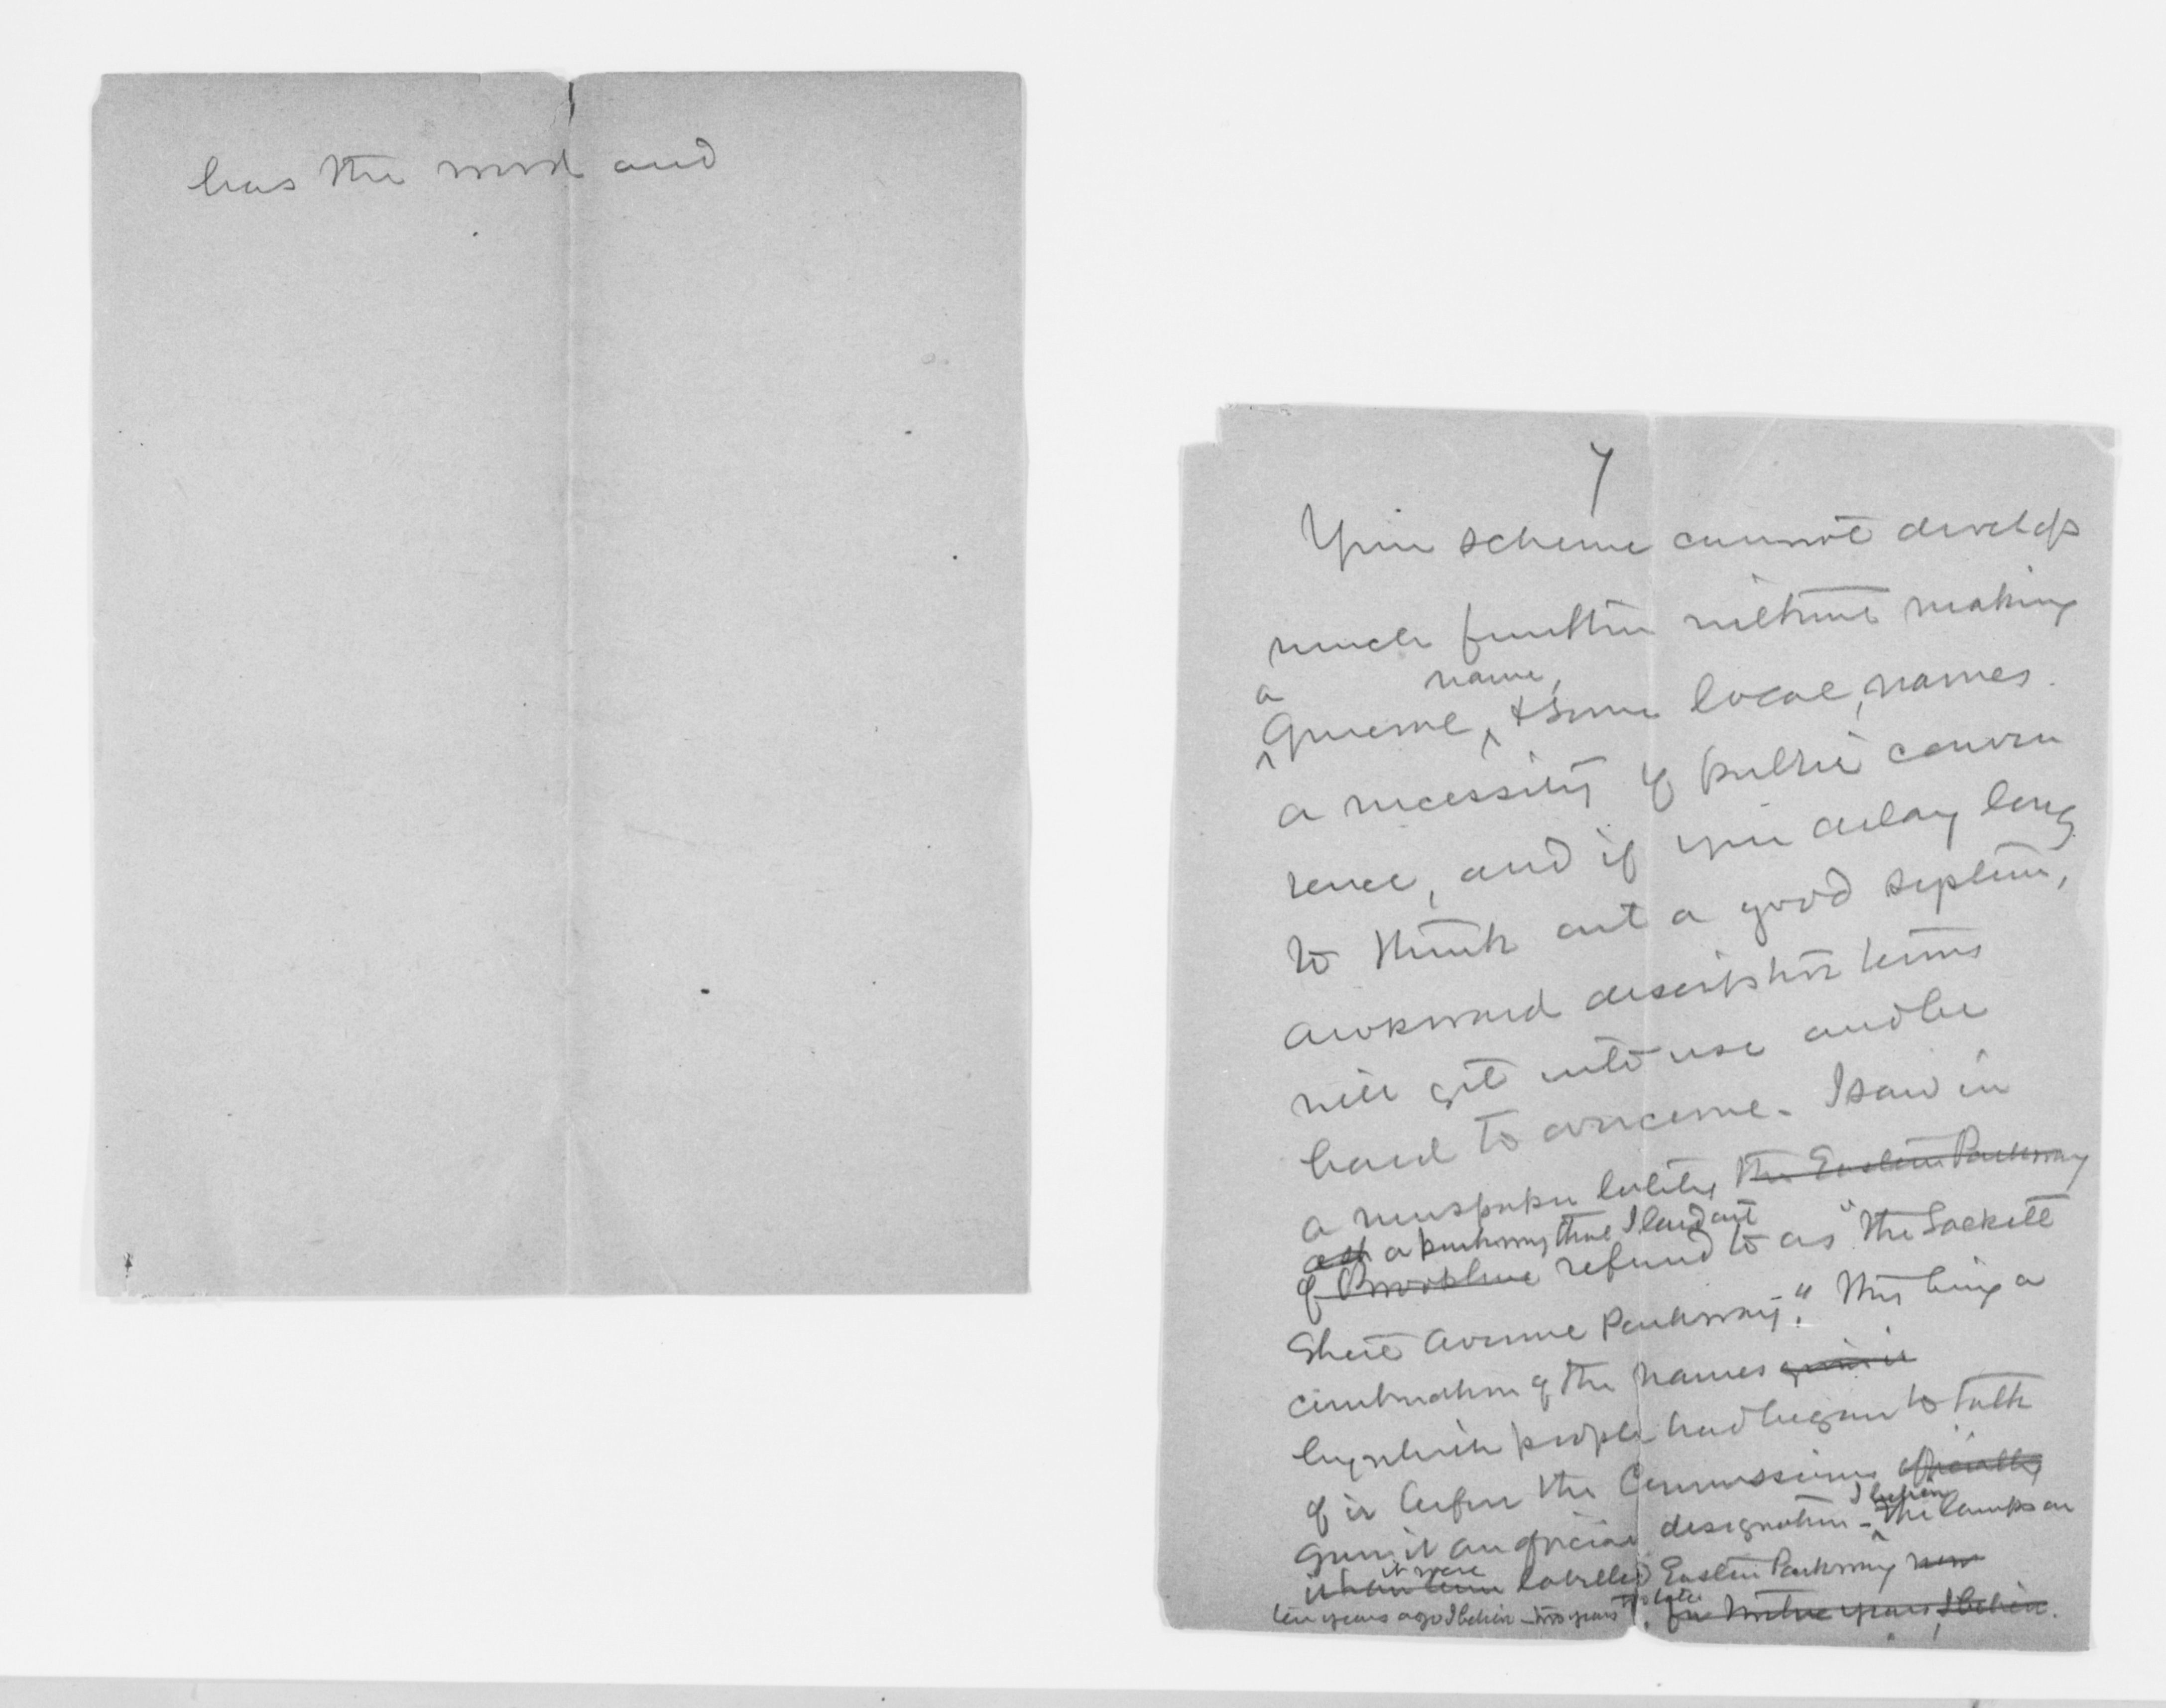 has the word and
7
Your scheme cannot develop
much further without making
a name,
General, & some local, names.
a necessity of public conven
ience, and if you delay long
to think out a good system,
awkward descriptive terms
will get into use and be
hard to overcome. I saw in
a newspaper lately the Eastern Parkway
a parkway that I laid out
of Brookline referred to as "the Sackett
Street Avenue Parkway". This being a
combination of the names given it
by which people had begun to talk
of it before the Commissioners officially
I believe
gave it an official designation - The lamps on
it were
it have been labelled Eastern Parkway now
ten years ago I believe - two years too late. for twelve years, I believe.